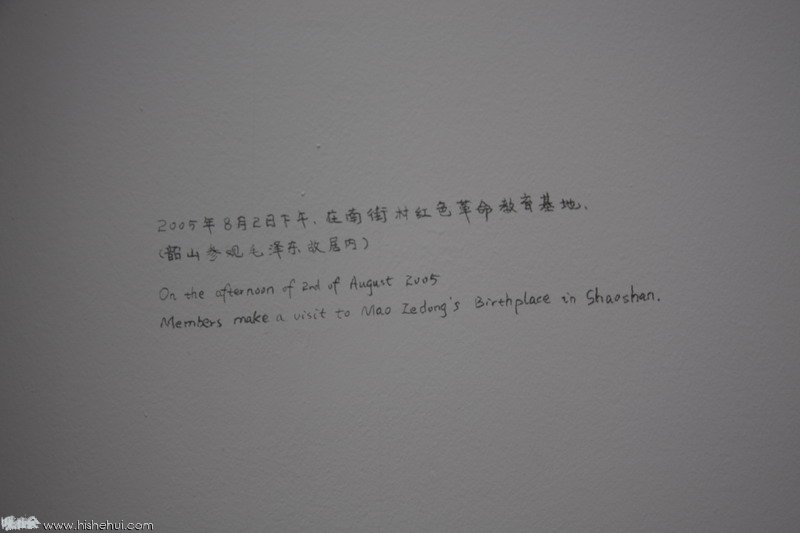 2005年8月2日下午、在南街村红色革命教育基地、
(韶山参观毛泽东故居内)
On the afternoon of 2nd of August 2005
Members make a visit to Mao Zedong's Birthplace in Shaoshan.
www.hishehui.com